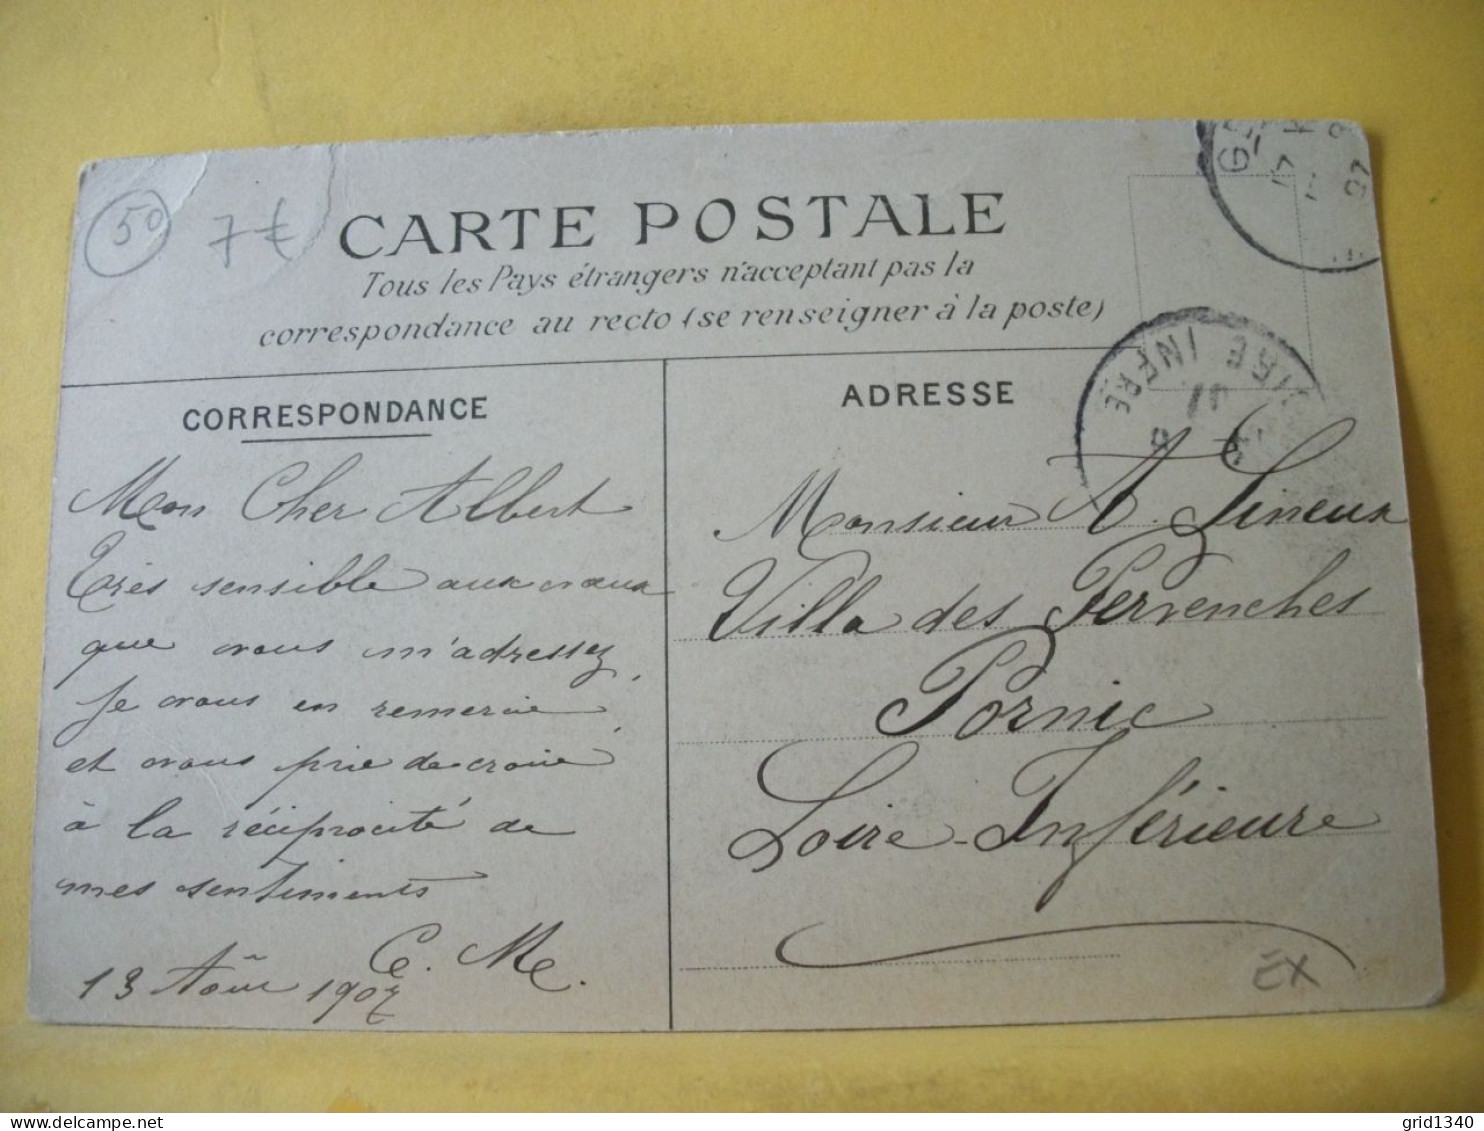 50
7€
CARTE POSTALE
Tous les Pays étrangers n'acceptant pas la
correspondance au recto (se renseigner à la poste)
CORRESPONDANCE
Mon Cher Albert
Très sensible aux vœux
que vous m'adressez,
je vous en remercie,
et vous prie de croire
à la réciprocité de
mes sentiments
C. M.
13 Août 1907
ADRESSE
IRE INFRE
Monsieur A. Lineux
Villa des Pervenches
Pornic
Loire-Inférieure
EX
grid1340